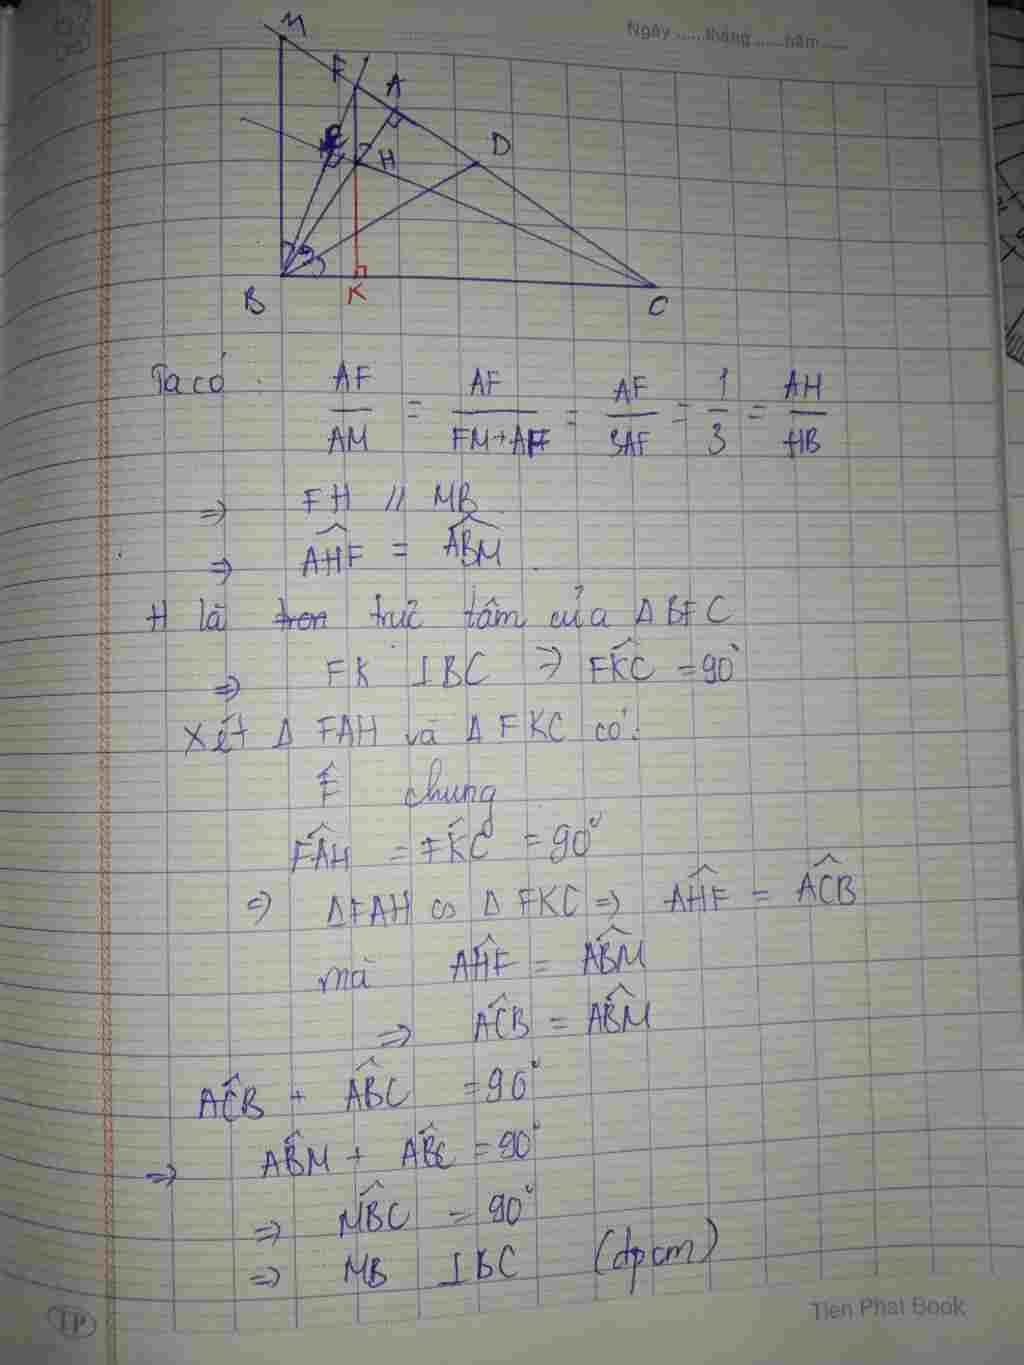 Ngày ...... tháng ...... năm ......
M
F
A
D
H
B
K
C
Ta có : AF/AM = AF/FM+AF = AF/3AF = 1/3 = AH/HB
=> FH // MB
=> AHF = ABM
H là trực tâm của Δ BFC
=> FK ⊥ BC => FKC = 90°
Xét Δ FAH và Δ FKC có:
F chung
FAH = FKC = 90°
=> ΔFAH ∽ Δ FKC => AHF = ACB
mà AHF = ABM
=> ACB = ABM
ACB + ABC = 90°
=> ABM + ABC = 90°
=> MBC = 90°
=> MB ⊥ BC (đpcm)
TP
Tien Phat Book